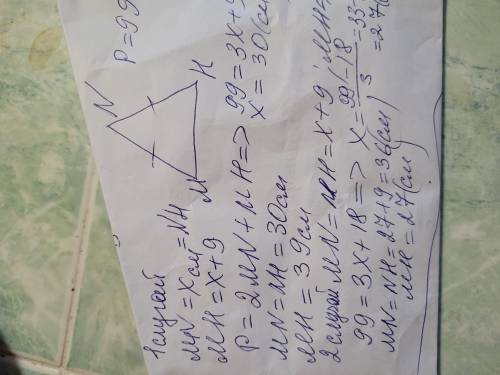 P=99
N
M
H
1 случай
MN = X см = NH
MH = X+9
P = 2MN + MH => 99 = 3X+9
X = 30 (см
MN = NH = 30 см
MH = 39 см
2 случай MN = NH = X+9; MH=
99 = 3X + 18 => X = (99-18)/3 = 33-
MN = NH = 27+9 = 36 (см) = 27 (
MH = 27 (см)